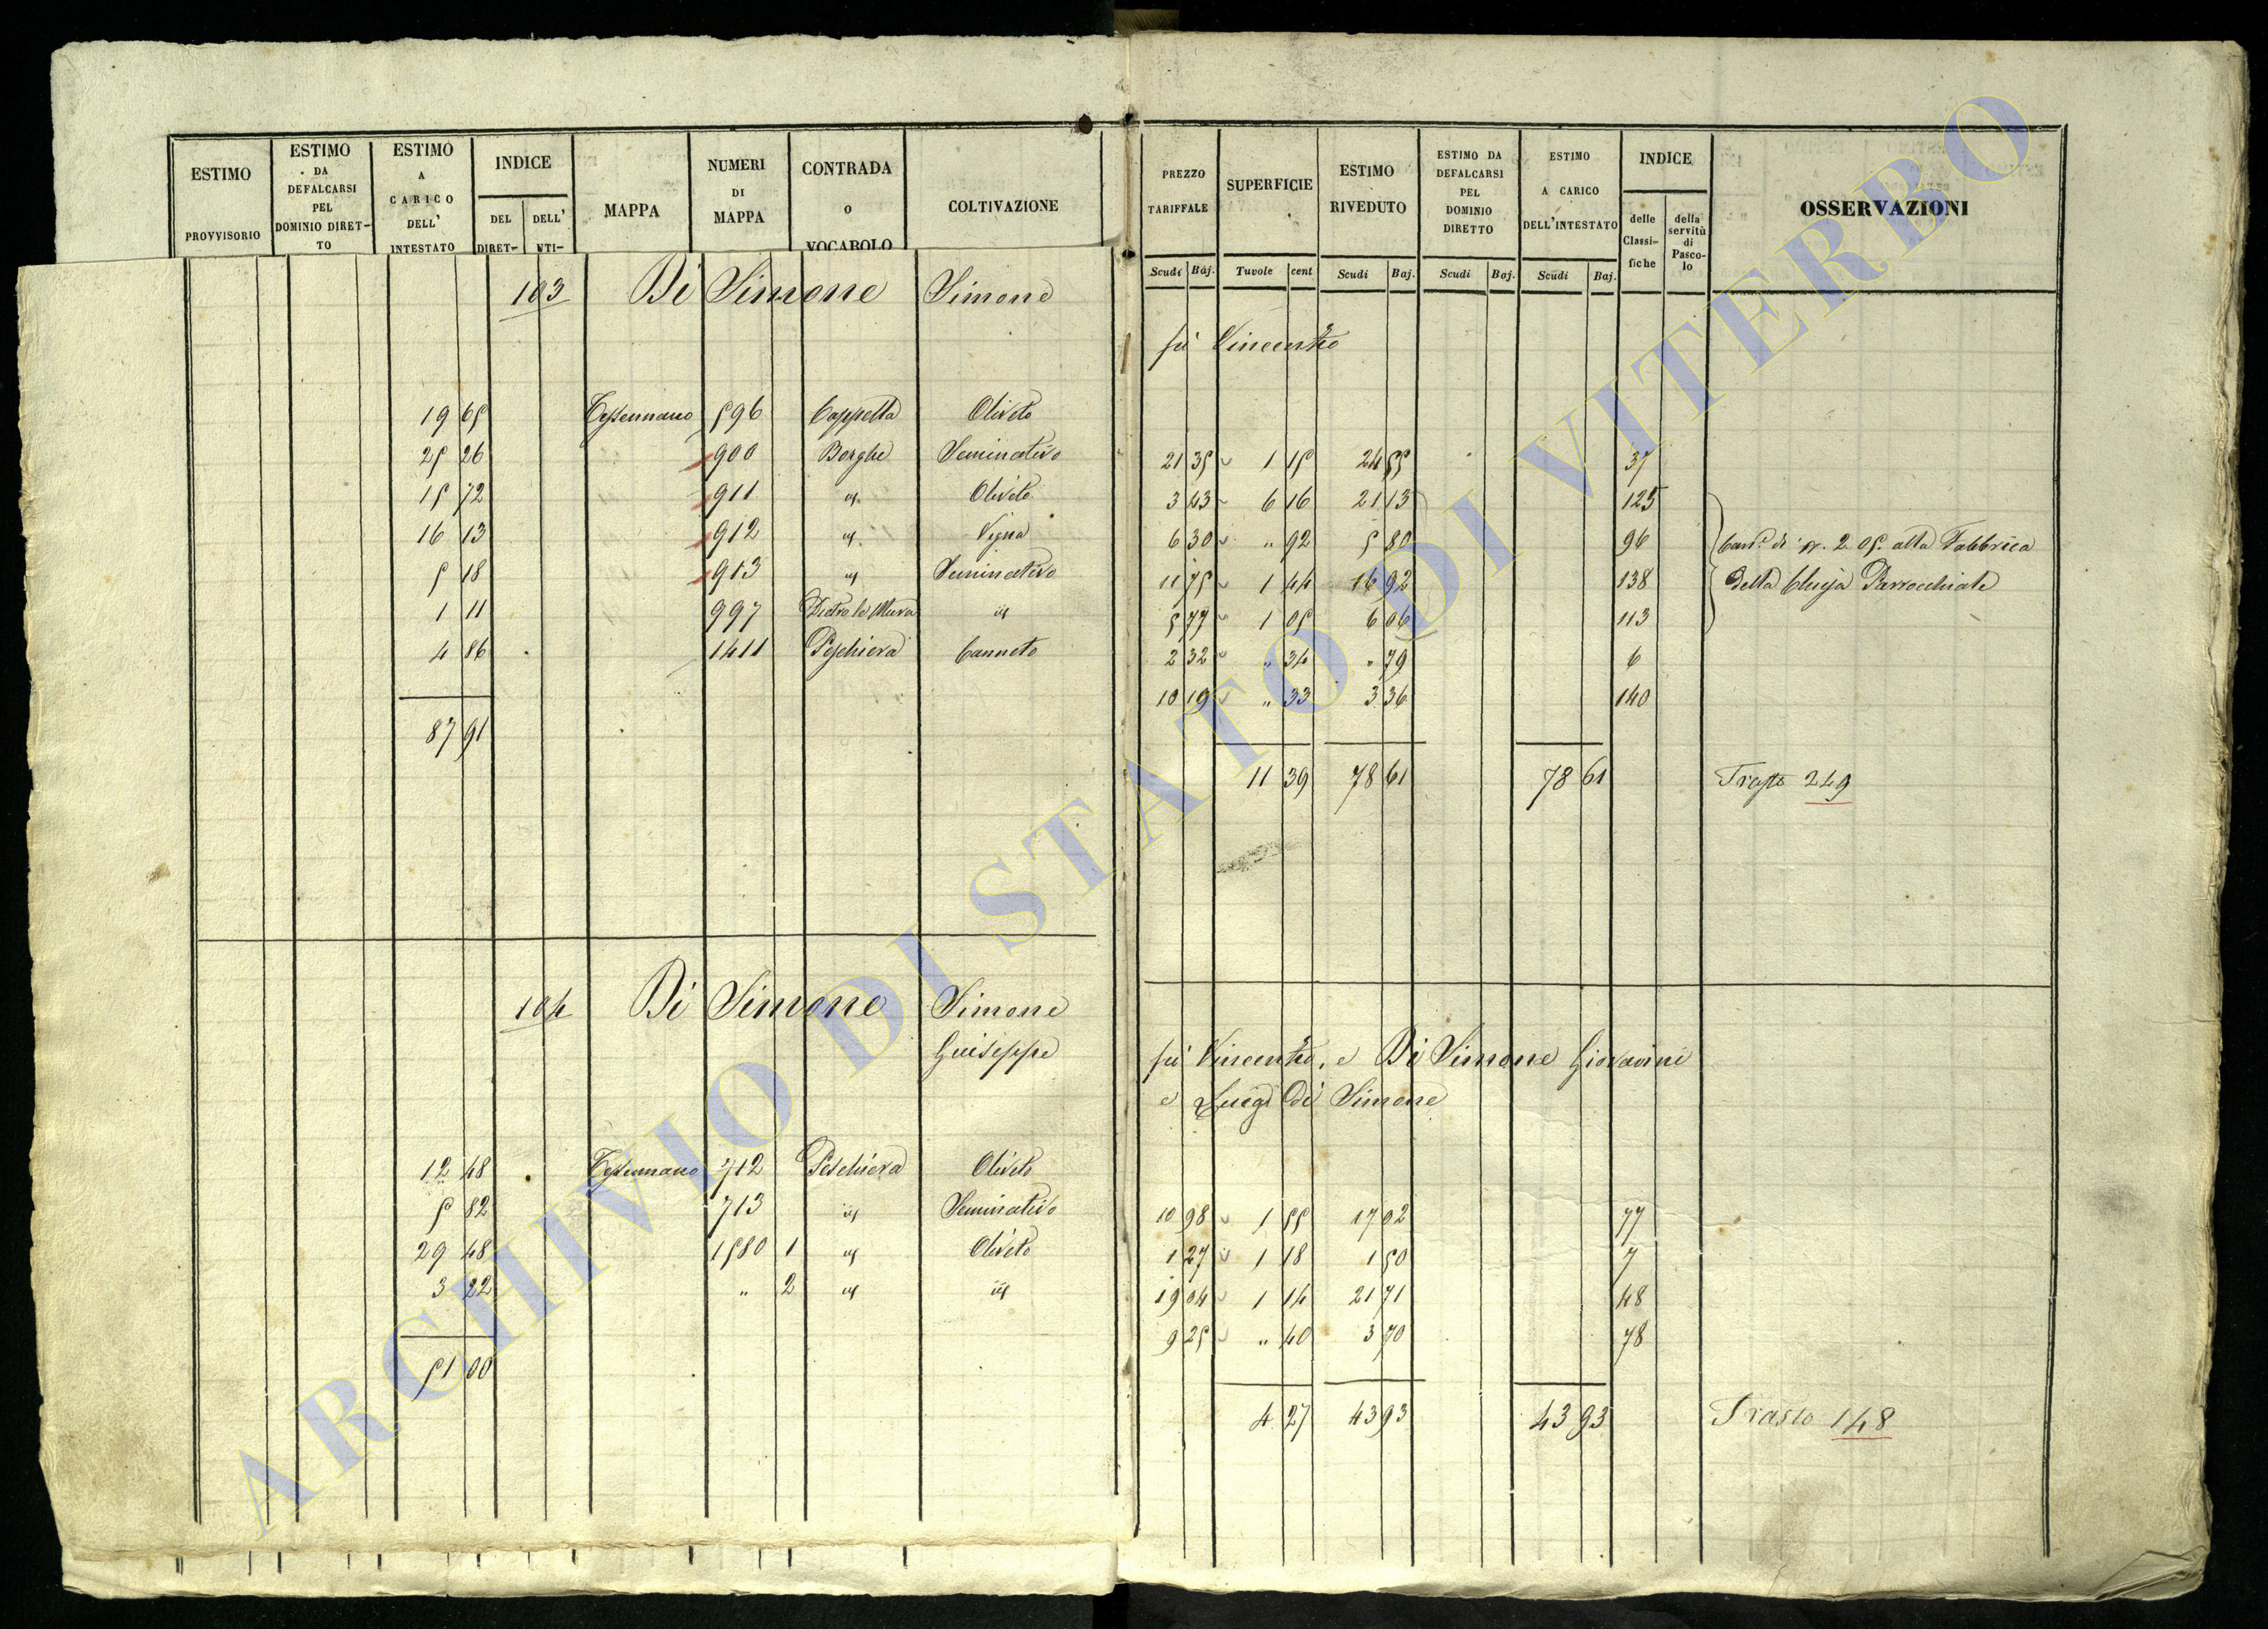 ESTIMO PROVVISORIO | ESTIMO DA DEFALCARSI PEL DOMINIO DIRET-TO | ESTIMO A CARICO DELL' INTESTATO | INDICE DEL DIRET- DELL' UTI- | MAPPA | NUMERI DI MAPPA | CONTRADA O VOCABOLO | COLTIVAZIONE
103 Di Simone Simone
19 65 Tessennano 596 Cappella Oliveto
25 26 900 Borghe Seminativo
15 72 911 " Oliveto
16 13 912 " Vigna
5 18 913 " Seminativo
1 11 997 Dietro le Mura "
4 86 1411 Peschiera Canneto
87 91
104 Di Simone Simone
Guiseppe
12 48 Tessennano 712 Peschiera Oliveto
5 82 713 " Seminativo
29 48 1580 1 " Oliveto
3 22 " 2 " "
51 00
PREZZO TARIFFALE | SUPERFICIE | ESTIMO RIVEDUTO | ESTIMO DA DEFALCARSI PEL DOMINIO DIRETTO | ESTIMO A CARICO DELL'INTESTATO | INDICE delle Classi-fiche della servitù di Pasco-lo | OSSERVAZIONI
Scudi Baj. Tuvole cent. Scudi Baj. Scudi Baj. Scudi Baj.
fù Vincenzo
21 35 1 15 24 55 37
3 43 6 16 21 13 125
6 30 " 92 5 80 96
11 75 1 44 16 92 138
5 77 1 05 6 06 113
2 32 " 34 " 79 6
10 19 " 33 3 36 140
Can.e di sc. 2. 05. alla Fabbrica
della Chiesa Parrocchiale
11 39 78 61 78 61 Trasto 249
fù Vincenzo, e Di Simone Giovanni
e Luigi di Simone
10 98 1 55 17 02 77
1 27 1 18 1 50 7
19 04 1 14 21 71 48
9 25 " 40 3 70 78
4 27 43 93 43 93 Trasto 148
ARCHIVIO DI STATO DI VITERBO